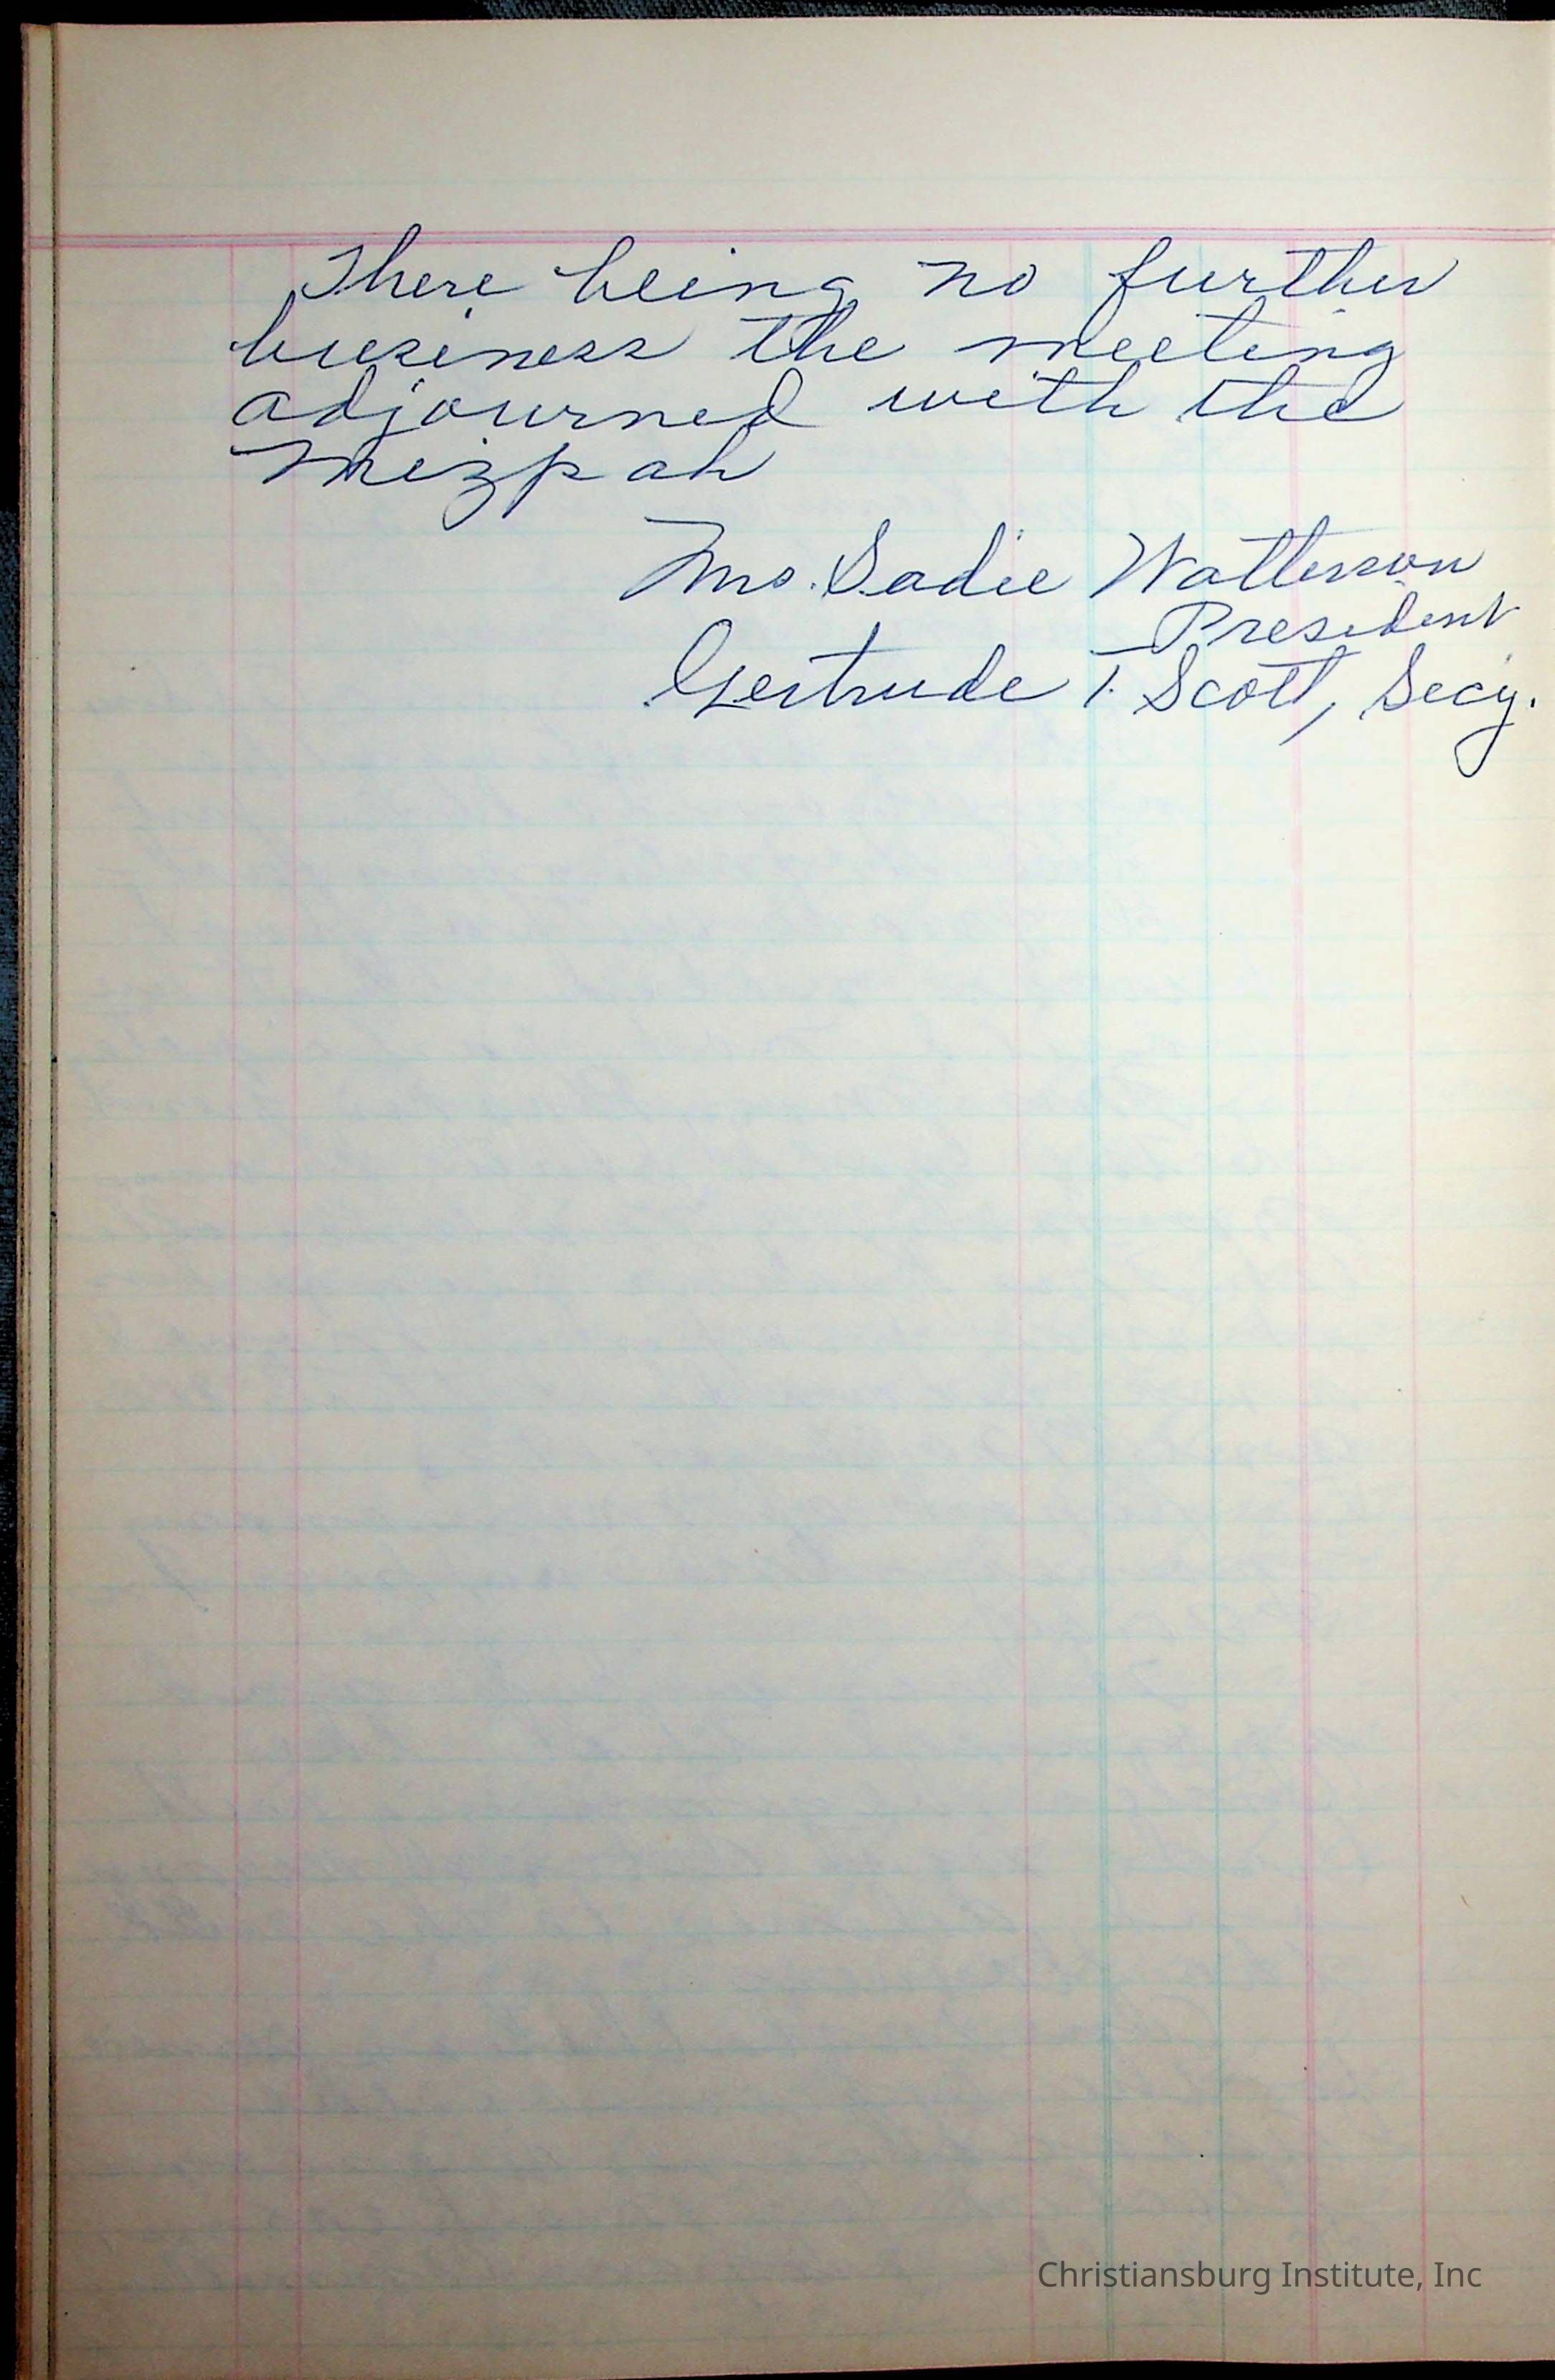 There being no further
business the meeting
adjourned with the
Mizpah
Mrs. Sadie Watterson
President
Gertrude T. Scott, Secy.
Christiansburg Institute, Inc